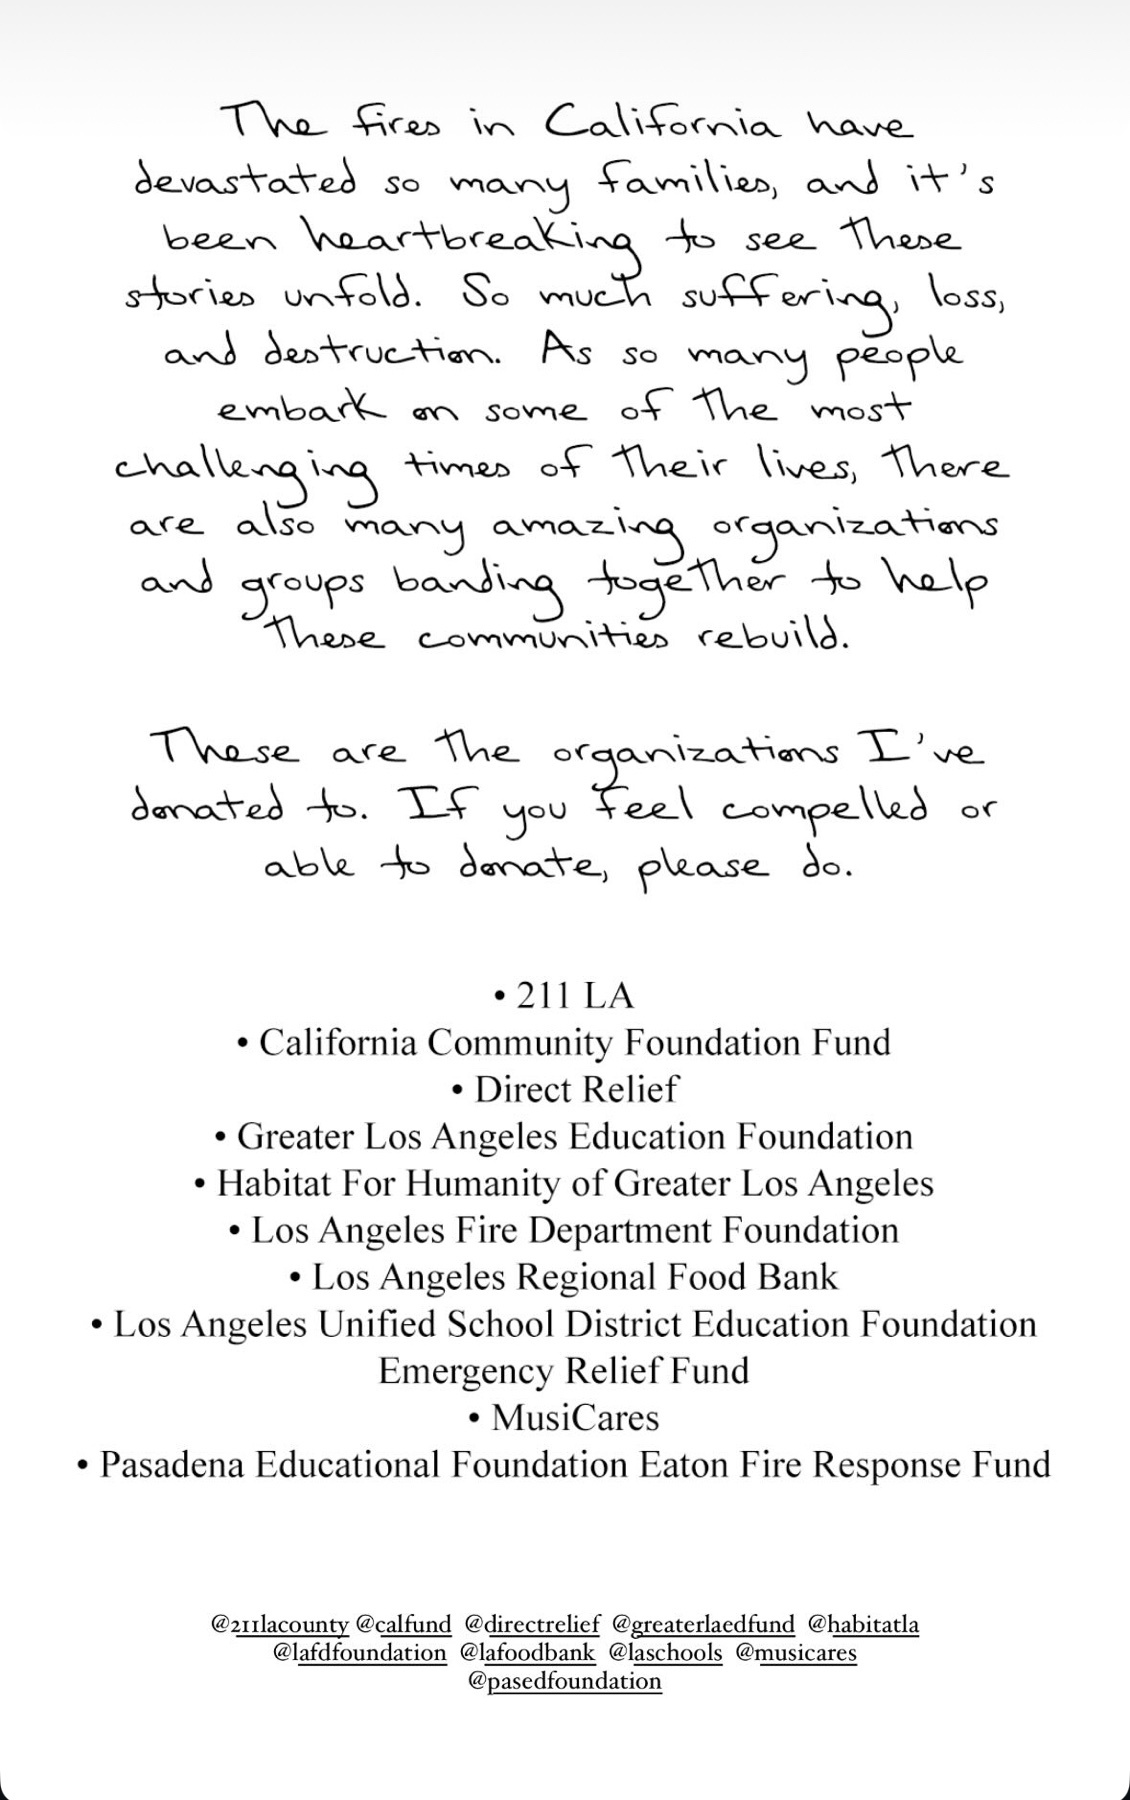 The fires in California have
devastated so many families, and it's
been heartbreaking to see these
stories unfold. So much suffering, loss,
and destruction. As so many people
embark on some of the most
challenging times of their lives, there
are also many amazing organizations
and groups banding together to help
these communities rebuild.
These are the organizations I've
donated to. If you feel compelled or
able to donate, please do.
• 211 LA
• California Community Foundation Fund
• Direct Relief
• Greater Los Angeles Education Foundation
• Habitat For Humanity of Greater Los Angeles
• Los Angeles Fire Department Foundation
• Los Angeles Regional Food Bank
• Los Angeles Unified School District Education Foundation
Emergency Relief Fund
• MusiCares
• Pasadena Educational Foundation Eaton Fire Response Fund
@211lacounty @calfund @directrelief @greaterlaedfund @habitatla
@lafdfoundation @lafoodbank @laschools @musicares
@pasedfoundation